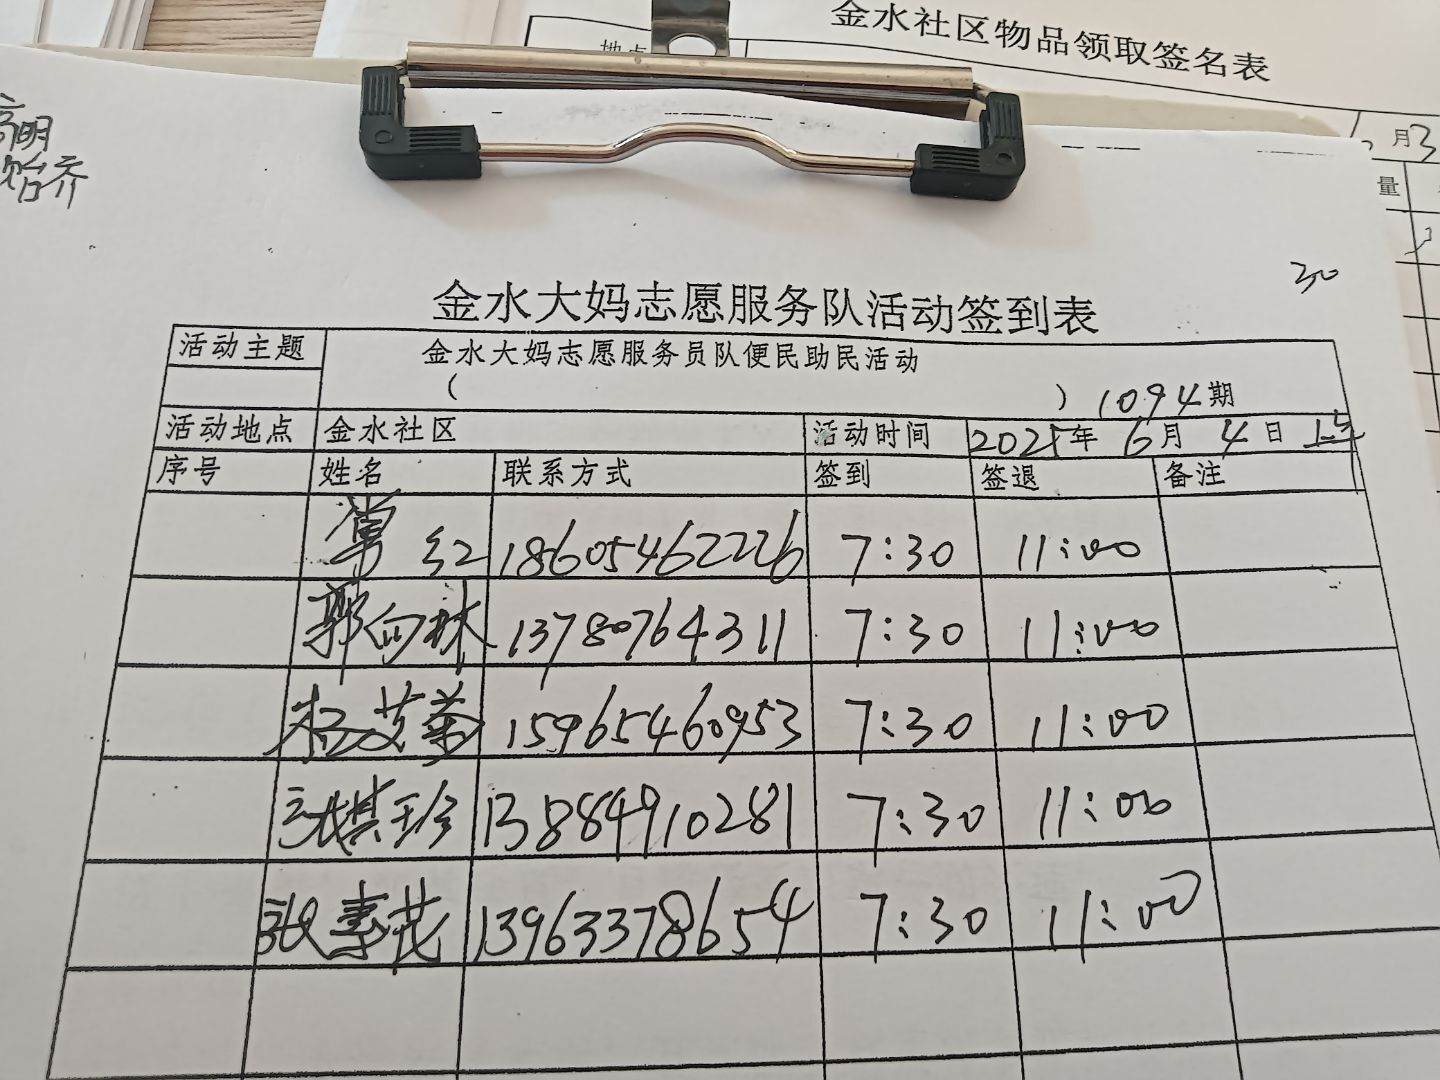 金水社区物品领取签名表
地点
月3
量
高明
30
金水大妈志愿服务队活动签到表
活动主题 金水大妈志愿服务员队便民助民活动
( ) 1094期
活动地点 金水社区 活动时间 2025年 6月 4日
序号 姓名 联系方式 签到 签退 备注
红 18605462226 7:30 11:00
郭向林 13780764311 7:30 11:00
杨艾菊 15965460953 7:30 11:00
张棋珍 13884910281 7:30 11:00
张素花 13963378654 7:30 11:00